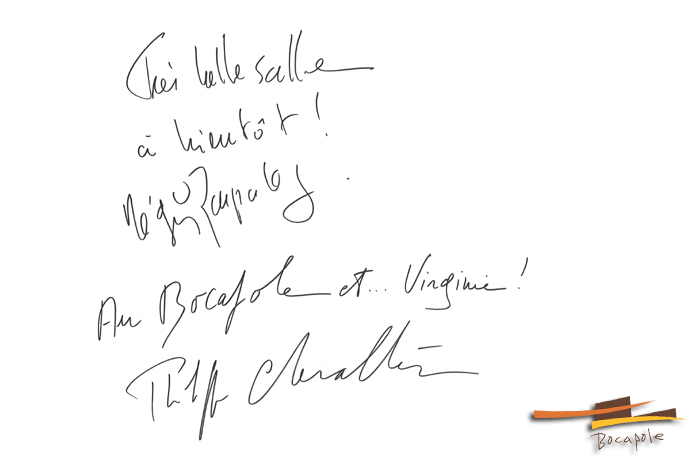 Très belle salle
à bientôt !
Au Bocapole et... Virginie !
Philippe Chevallier
Bocapole